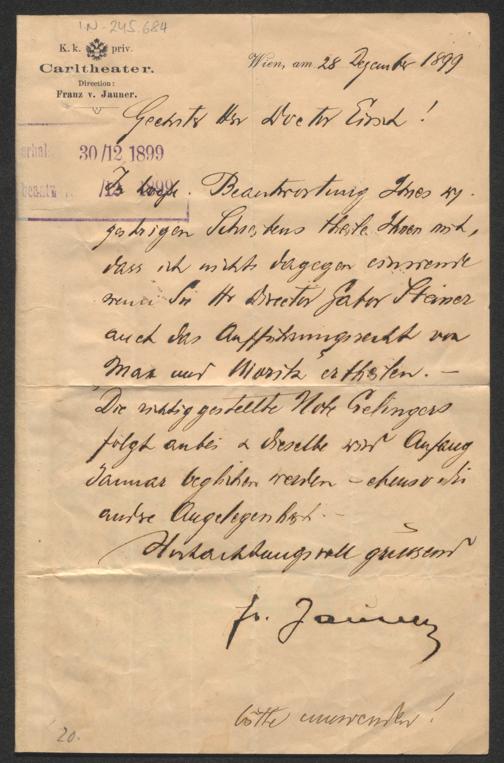 I.N. 245.684
K. k. priv.
Carltheater.
Direction:
Franz v. Jauner.
Wien, am 28 Dezember 1899
Geehrter Herr Doctor Eirich!
erhal. 30/12 1899
beantw. /12 1899
In höfl. Beantwortung Ihres
gestrigen Schreibens theile Ihnen mit,
dass ich nichts dagegen einwende
wenn Sie Hr Director Gabor Steiner
auch das Aufführungsrecht von
"Max und Moritz" ertheilen. –
Die richtig gestellte Note
folgt anbei & dieselbe wird Anfang
Januar beglichen werden – ebenso die
andre Angelegenheit. –
Hochachtungsvoll grüssend
Fr. Jauner
bitte umwenden!
20.